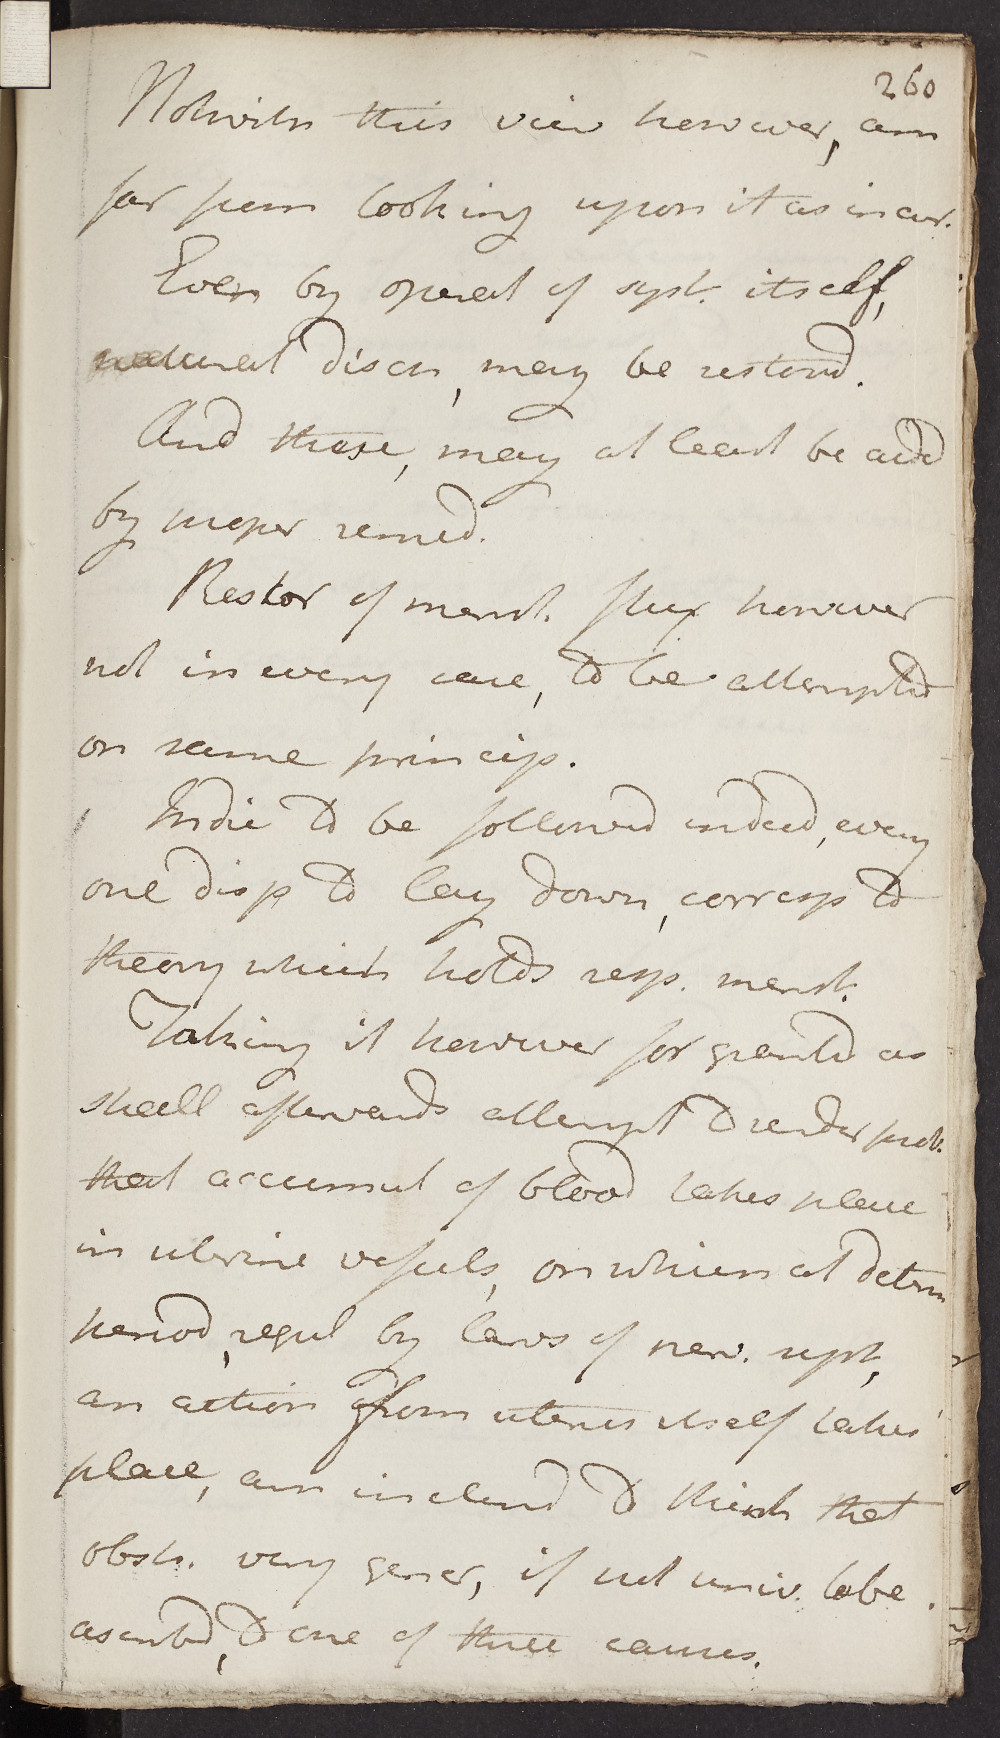 260
Notwith this view however, am
far from looking upon it as incur.
Even by operat of syst. itself,
natural disch, may be restord.
And these, may at least be aidd
by proper remed.
Restor of menst. flux however
not in every case, to be attemptd
on same princip.
Indic to be followd indeed, every
one disp to lay down, corresp to
theory which holds resp. menst.
Taking it however for grantd as
shall afterwards attempt to render prob.
that accumul of blood takes place
in uterine vessels, on which at determ
period, regul by laws of nerv. syst,
an action from uterus itself takes
place, am inclind to think that
obstr. very gener, if not univ. to be
ascribd, to one of three causes.